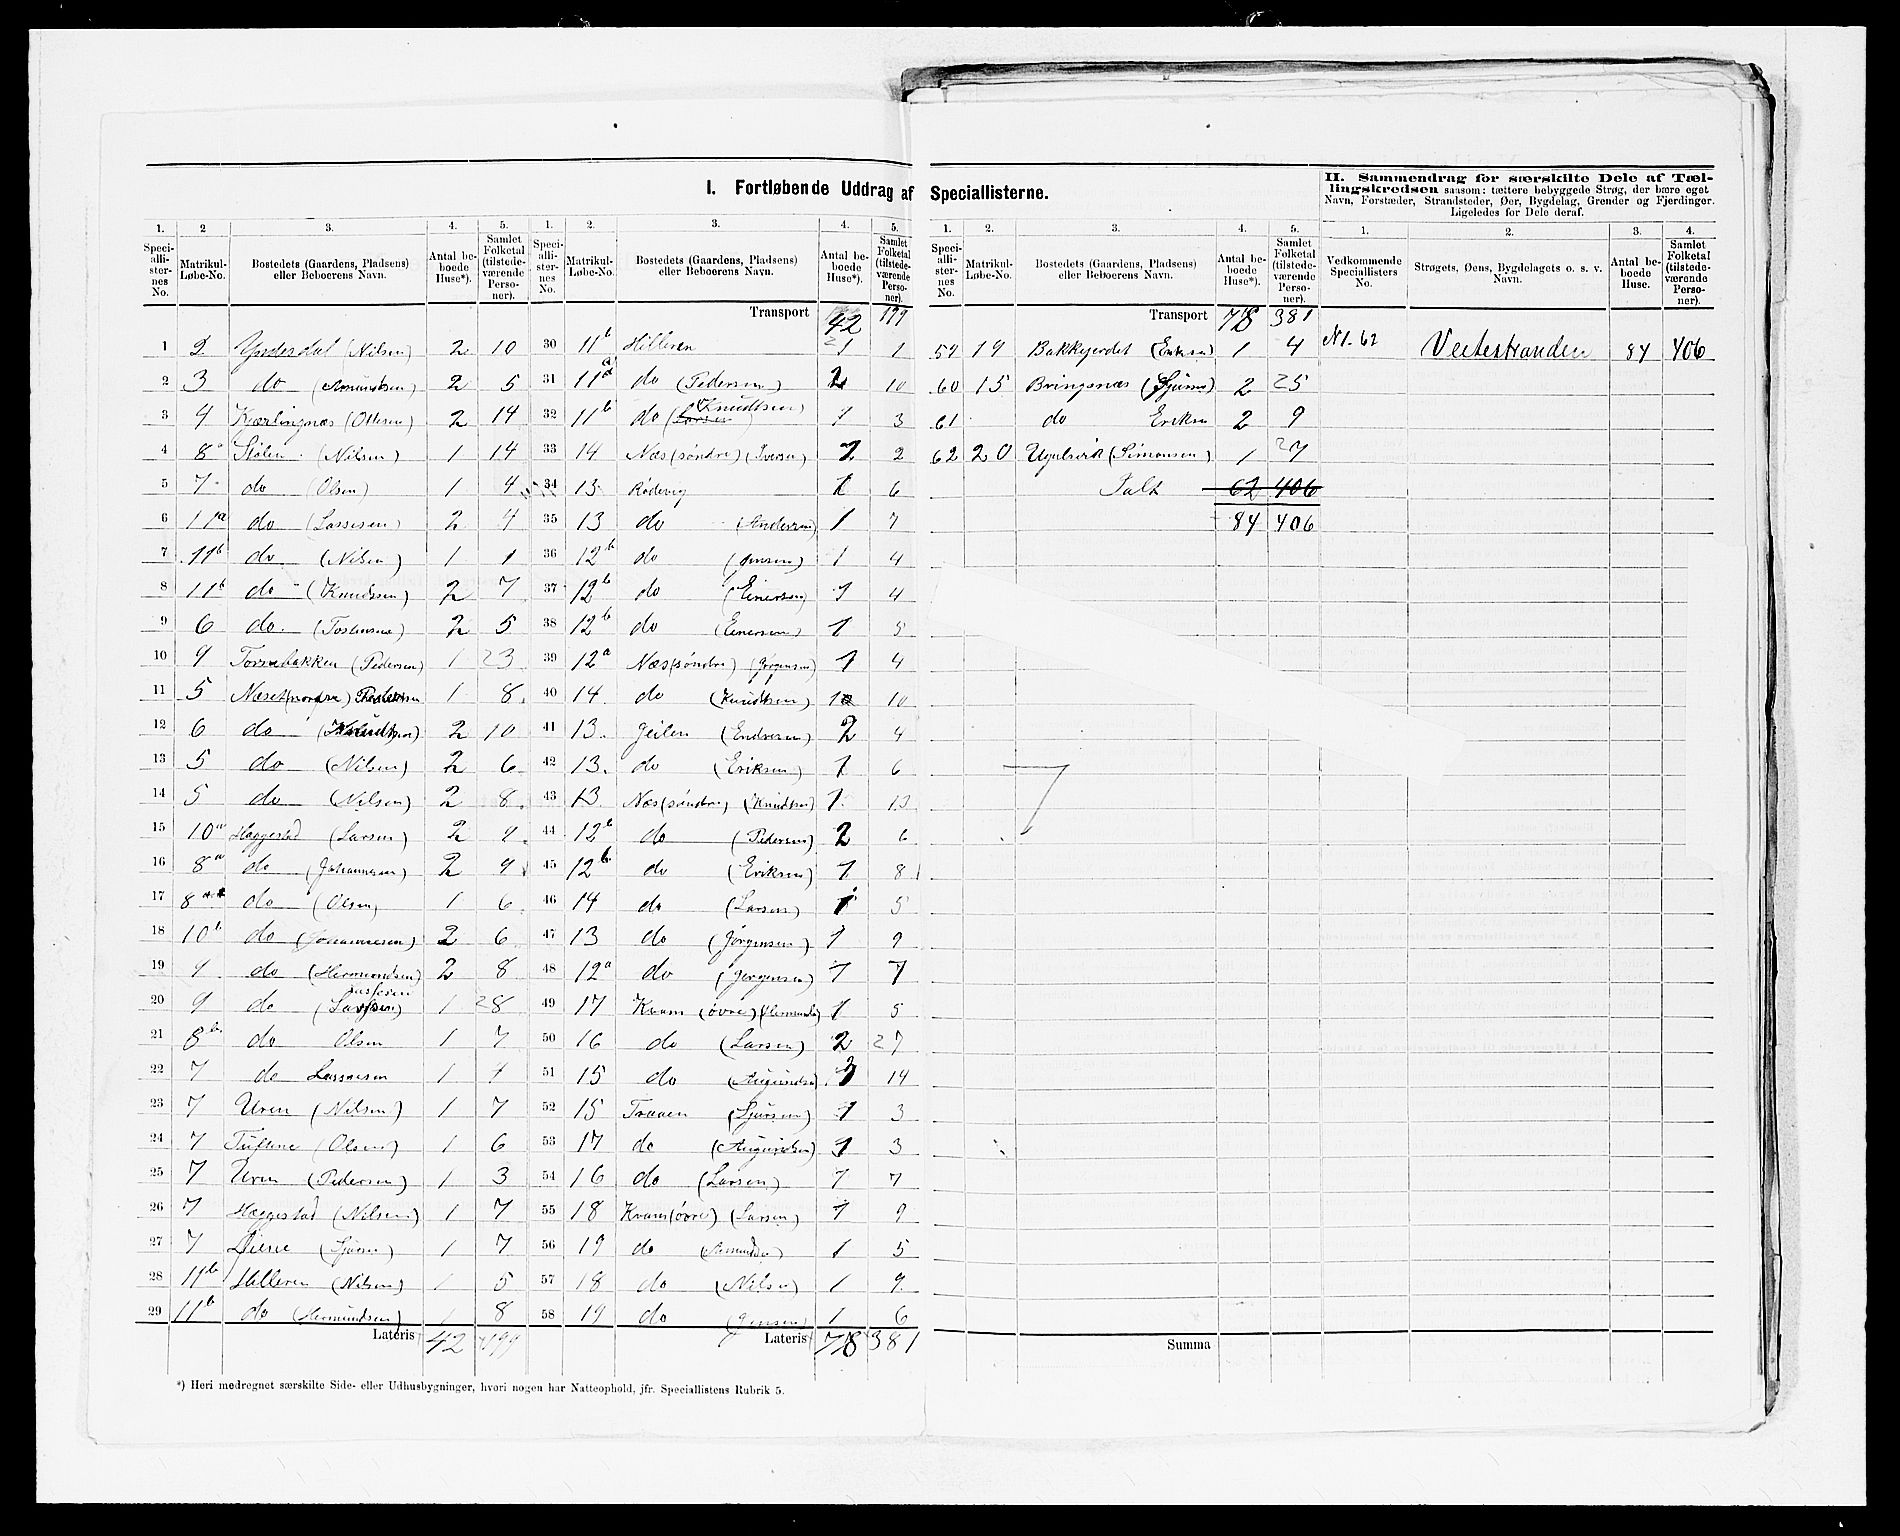 I. Fortløbende Uddrag af Speciallisterne.
II. Sammendrag for særskilte Dele af Tællingskredsen saasom: tættere bebyggede Strøg, der bære eget Navn, Forstæder, Strandsteder, Øer, Bygdelag, Grender og Fjerdinger. Ligeledes for Dele deraf.
1. 2 3. 4. 5. 1. 2. 3. 4. 5.
Speciallisternes No. Matrikul-Løbe-No. Bostedets (Gaardens, Pladsens) eller Beboerens Navn. Antal beboede Huse*). Samlet Folketal (tilstedeværende Personer).
Speciallisternes No. Matrikul-Løbe-No. Bostedets (Gaardens, Pladsens) eller Beboerens Navn. Antal beboede Huse*). Samlet Folketal (tilstedeværende Personer).
Transport 42 199
1 2 Yndesdal (Nilsen) 2 10
2 3 do (Amundsen) 2 5
3 4 Kjærlingnæs (Ottesen) 2 14
4 8a Stølen (Nilsen) 1 14
5 7 do (Olsen) 1 4
6 11a do (Lassesen) 2 4
7 11b do (Nilsen) 1 1
8 11b do (Knudsen) 2 7
9 6 do 2 5
10 9 (Pedersen) 1 23
11 5 Næset (nordre) Pedersen 1 8
12 6 do (Knudtsen) 2 10
13 5 do (Nilsen) 2 6
14 5 do (Nilsen) 2 8
15 10a Hæggestad (Larsen) 2 9
16 8a do (Johannesen) 2 9
17 8 do (Olsen) 1 6
18 10b do (Johannesen) 2 6
19 9 do (Hermundsen) 2 8
20 9 do (Lassesen) 1 28
21 8b do Olsen 1 7
22 7 do Lassesen 1
23 7 Uren (Nilsen) 1 7
24 7 Tuftene (Olsen) 1 6
25 7 Uren (Pedersen) 1 3
26 7 Hæggestad (Nilsen) 1 7
27 7 1 7
28 11b Hilleren (Nilsen) 1 5
29 11b do (Hermundsen) 1 8
Lateris 42 199
30 11b Hilleren 1 1
31 11a do (Pedersen) 2 10
32 11b do (Larsen Knudtsen) 1 3
33 14 Næs (søndre) (Iversen) 1 2
34 13 Rødevig 1 6
35 13 do (Andersen) 1 7
36 12b do (Jensen) 1 4
37 12b do (Einersen) 1 4
38 12b do (Einersen) 1 5
39 12a Næs (søndre) (Jørgensen) 1 4
40 14 do (Knudtsen) 1 10
41 13. Geilen (Endresen) 2 4
42 13. do (Eriksen) 1 6
43 13. Næs (søndre) (Knudtsen) 1 13
44 12b do (Pedersen) 2 6
45 12b do (Eriksen) 1 8
46 14 do (Larsen) 1 5
47 13 do (Jørgensen) 1 9
48 12a do (Jørgensen) 1 7
49 17 Kvam (øvre) 1 5
50 16 do (Larsen) 2 27
51 15 do (Augundsen) 14
52 15 Traaen (Sjursen) 1 3
53 17 do (Augundsen) 1 3
54 16 do (Larsen) 1 7
55 18 Kvam (øvre) (Larsen) 1 9
56 19 do 1 5
57 18 do (Nilsen) 1 9
58 19 do (Jensen) 1 6
Lateris 78 381
*) Heri medregnet særskilte Side- eller Udhusbygninger, hvori nogen har Natteophold, jfr. Speciallistens Rubrik 5.
1. 2. 3. 4. 5. 1. 2. 3. 4.
Speciallisternes No. Matrikul-Løbe-No. Bostedets (Gaardens, Pladsens) eller Beboerens Navn. Antal beboede Huse*). Samlet Folketal (tilstedeværende Personer).
Vedkommende Speciallisters No. Strøgets, Øens, Bygdelagets o. s. v. Navn. Antal beboede Huse. Samlet Folketal (tilstedeværende Personer).
Transport 78 381
59 19 Bakkejerdet (Eriksen) 1 4
60 15 Bringsnæs (Sjursen) 2 25
61 do Eriksen 2 9
62 20 (Simonsen) 1 27
Ialt 62 406
84 406
Summa
N 1-62 Veitestranden 84 406